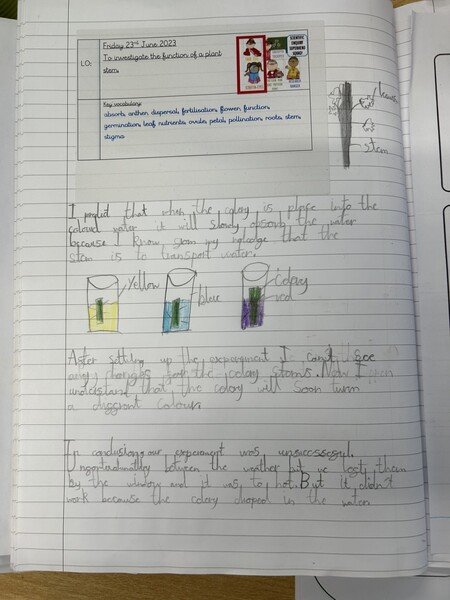 Friday 23rd June 2023
LO:
To investigate the function of a plant
stem.
SCIENTIFIC
ENQUIRY
Key vocabulary:
absorb, anther, dispersal, fertilisation, flower, function,
germination, leaf, nutrients, ovule, petal, pollination, roots, stem,
stigma
stem
I predict that when the celery is place into the
coloured water it will slowly absorb the water
because I know from my nolodge that the
stem is to transport water.
Yellow
blue
Celery
red
After setting up the experiment I can't see
any changes for the celery stems. Now I can
understand that the celery will soon turn
a different colour.
In conclusion our experiment was unsuccessful.
between the weather but we left them
by the window and it was to hot. But it didn't
work because the celery droped in the water.